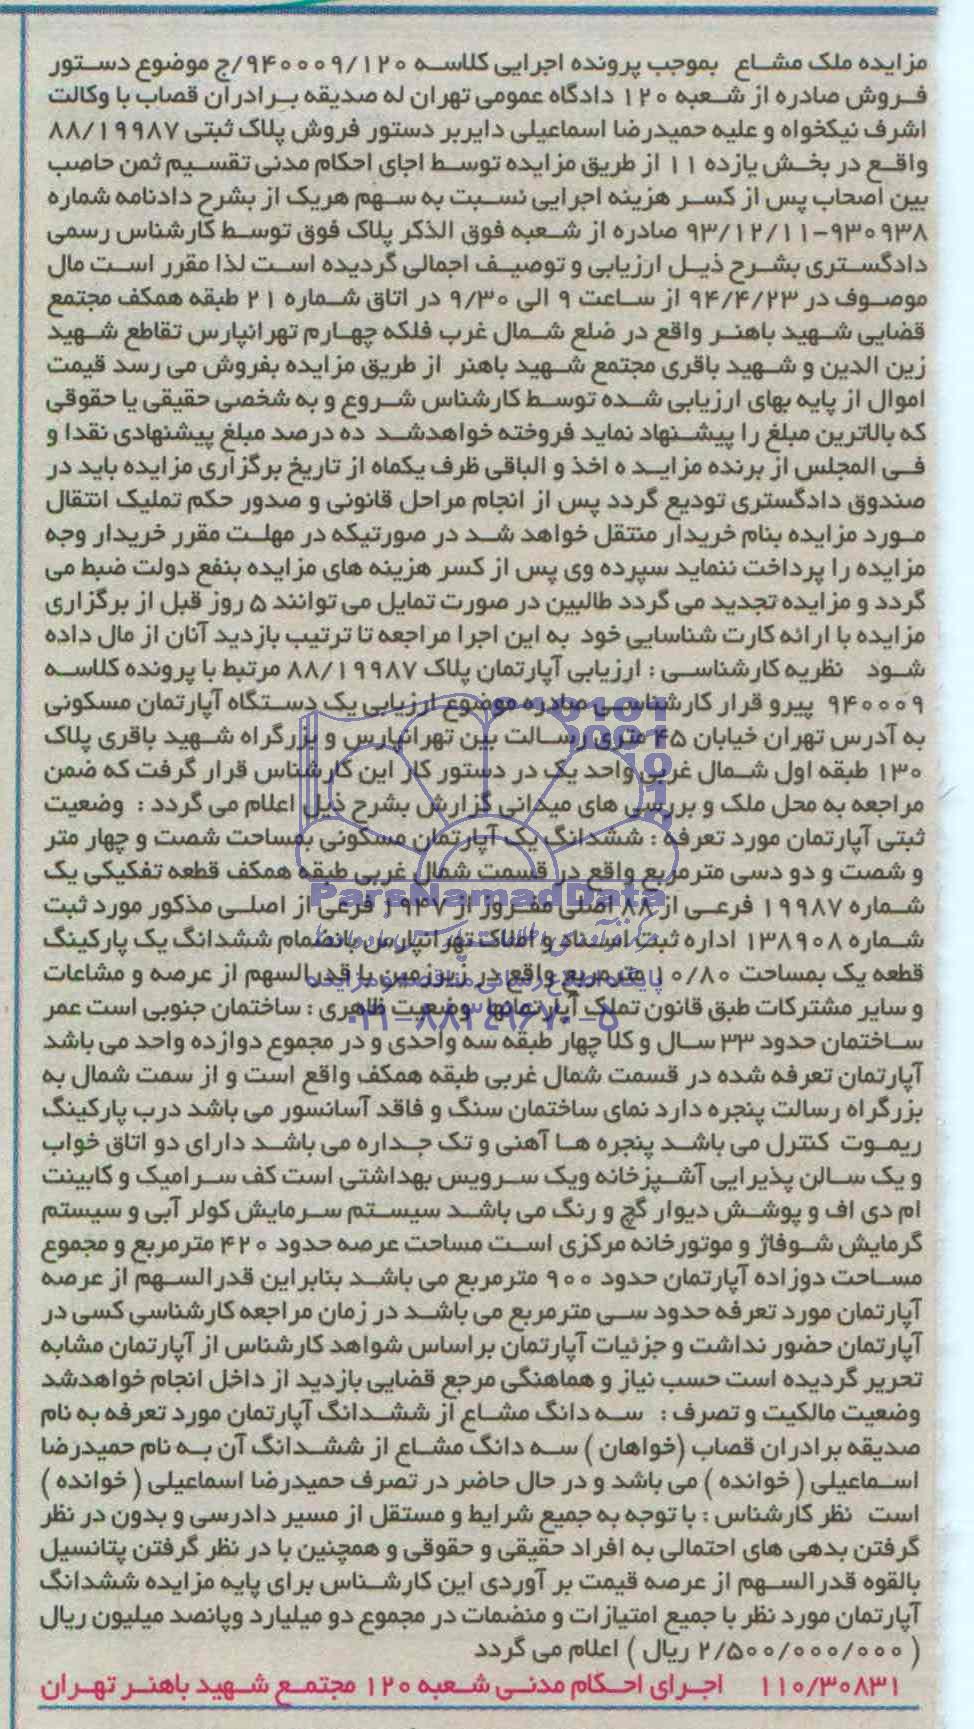 مزایده ملک مشاع بموجب پرونده اجرایی کلاسه ۹۴۰۰۰۹/۱۲۰/ج موضوع دستور
فروش صادره از شعبه ۱۲۰ دادگاه عمومی تهران له صدیقه برادران قصاب با وکالت
اشرف نیکخواه و علیه حمیدرضا اسماعیلی دایربر دستور فروش پلاک ثبتی ۸۸/۱۹۹۸۷
واقع در بخش یازده ۱۱ از طریق مزایده توسط اجای احکام مدنی تقسیم ثمن حاصب
بین اصحاب پس از کسر هزینه اجرایی نسبت به سهم هریک از بشرح دادنامه شماره
۹۳۰۹۳۸-۹۳/۱۲/۱۱ صادره از شعبه فوق الذکر پلاک فوق توسط کارشناس رسمی
دادگستری بشرح ذیل ارزیابی و توصیف اجمالی گردیده است لذا مقرر است مال
موصوف در ۹۴/۴/۲۳ از ساعت ۹ الی ۹/۳۰ در اتاق شماره ۲۱ طبقه همکف مجتمع
قضایی شهید باهنر واقع در ضلع شمال غرب فلکه چهارم تهرانپارس تقاطع شهید
زین الدین و شهید باقری مجتمع شهید باهنر از طریق مزایده بفروش می رسد قیمت
اموال از پایه بهای ارزیابی شده توسط کارشناس شروع و به شخصی حقیقی یا حقوقی
که بالاترین مبلغ را پیشنهاد نماید فروخته خواهدشد ده درصد مبلغ پیشنهادی نقدا و
فی المجلس از برنده مزایده اخذ و الباقی ظرف یکماه از تاریخ برگزاری مزایده باید در
صندوق دادگستری تودیع گردد پس از انجام مراحل قانونی و صدور حکم تملیک انتقال
مورد مزایده بنام خریدار منتقل خواهد شد در صورتیکه در مهلت مقرر خریدار وجه
مزایده را پرداخت ننماید سپرده وی پس از کسر هزینه های مزایده بنفع دولت ضبط می
گردد و مزایده تجدید می گردد طالبین در صورت تمایل می توانند ۵ روز قبل از برگزاری
مزایده با ارائه کارت شناسایی خود به این اجرا مراجعه تا ترتیب بازدید آنان از مال داده
شود نظریه کارشناسی : ارزیابی آپارتمان پلاک ۸۸/۱۹۹۸۷ مرتبط با پرونده کلاسه
۹۴۰۰۰۹ پیرو قرار کارشناسی صادره موضوع ارزیابی یک دستگاه آپارتمان مسکونی
به آدرس تهران خیابان ۴۵ متری رسالت بین تهرانپارس و بزرگراه شهید باقری پلاک
۱۳۰ طبقه اول شمال غربی واحد یک در دستور کار این کارشناس قرار گرفت که ضمن
مراجعه به محل ملک و بررسی های میدانی گزارش بشرح ذیل اعلام می گردد : وضعیت
ثبتی آپارتمان مورد تعرفه : ششدانگ یک آپارتمان مسکونی بمساحت شصت و چهار متر
و شصت و دو دسی مترمربع واقع در قسمت شمال غربی طبقه همکف قطعه تفکیکی یک
شماره ۱۹۹۸۷ فرعی از ۸۸ اصلی مفروز از ۱۹۴۷ فرعی از اصلی مذکور مورد ثبت
شماره ۱۳۸۹۰۸ اداره ثبت اسناد و املاک تهرانپارس بانضمام ششدانگ یک پارکینگ
قطعه یک بمساحت ۱۰/۸۰ مترمربع واقع در زیرزمین با قدرالسهم از عرصه و مشاعات
و سایر مشترکات طبق قانون تملک آپارتمانها وضعیت ظاهری : ساختمان جنوبی است عمر
ساختمان حدود ۳۳ سال و کلا چهار طبقه سه واحدی و در مجموع دوازده واحد می باشد
آپارتمان تعرفه شده در قسمت شمال غربی طبقه همکف واقع است و از سمت شمال به
بزرگراه رسالت پنجره دارد نمای ساختمان سنگ و فاقد آسانسور می باشد درب پارکینگ
ریموت کنترل می باشد پنجره ها آهنی و تک جداره می باشد دارای دو اتاق خواب
و یک سالن پذیرایی آشپزخانه ویک سرویس بهداشتی است کف سرامیک و کابینت
ام دی اف و پوشش دیوار گچ و رنگ می باشد سیستم سرمایش کولر آبی و سیستم
گرمایش شوفاژ و موتورخانه مرکزی است مساحت عرصه حدود ۴۲۰ مترمربع و مجموع
مساحت دوزاده آپارتمان حدود ۹۰۰ مترمربع می باشد بنابراین قدرالسهم از عرصه
آپارتمان مورد تعرفه حدود سی مترمربع می باشد در زمان مراجعه کارشناسی کسی در
آپارتمان حضور نداشت و جزئیات آپارتمان براساس شواهد کارشناس از آپارتمان مشابه
تحریر گردیده است حسب نیاز و هماهنگی مرجع قضایی بازدید از داخل انجام خواهدشد
وضعیت مالکیت و تصرف : سه دانگ مشاع از ششدانگ آپارتمان مورد تعرفه به نام
صدیقه برادران قصاب (خواهان ) سه دانگ مشاع از ششدانگ آن به نام حمیدرضا
اسماعیلی ( خوانده ) می باشد و در حال حاضر در تصرف حمیدرضا اسماعیلی ( خوانده )
است نظر کارشناس : با توجه به جمیع شرایط و مستقل از مسیر دادرسی و بدون در نظر
گرفتن بدهی های احتمالی به افراد حقیقی و حقوقی و همچنین با در نظر گرفتن پتانسیل
بالقوه قدرالسهم از عرصه قیمت بر آوردی این کارشناس برای پایه مزایده ششدانگ
آپارتمان مورد نظر با جمیع امتیازات و منضمات در مجموع دو میلیارد وپانصد میلیون ریال
( ۲/۵۰۰/۰۰۰/۰۰۰ ریال ) اعلام می گردد
۱۱۰/۳۰۸۳۱ اجرای احکام مدنی شعبه ۱۲۰ مجتمع شهید باهنر تهران
ParsNamadData
پایگاه اطلاع رسانی مناقصه و مزایده
۰۲۱-۸۸۳۴۹۶۷۰-۵